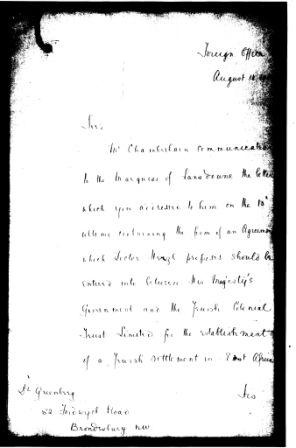 Foreign Office
August 14
Sir,
Mr Chamberlain communicated
to the Marquess of Lansdowne the letter
which you addressed to him on the
ultimo containing the form of an Agreement
which Doctor Herzl proposes should be
entered into between His Majesty's
Government and the Jewish Colonial
Trust Limited for the establishment
of a Jewish settlement in East Africa
L. Greenberg
Road
Brondesbury NW